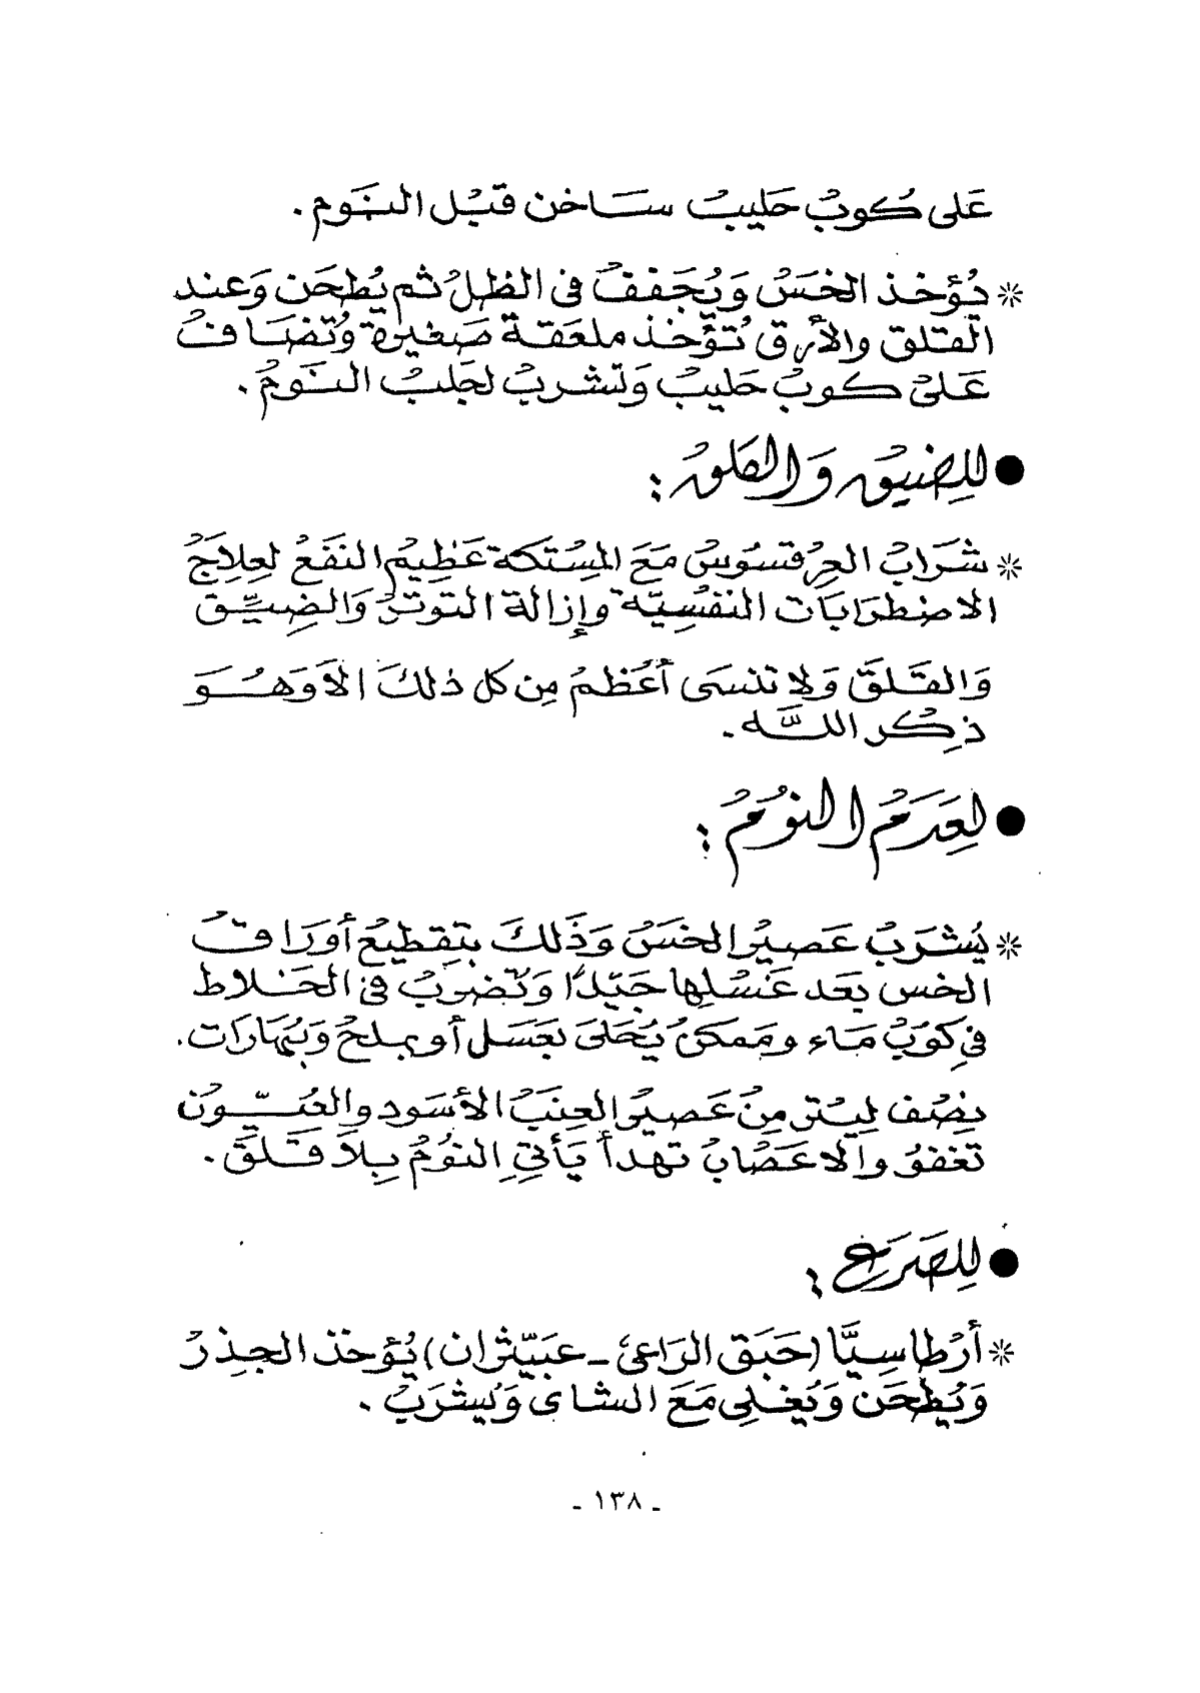 عَلى كُوبْ حَليبْ سَاخن قَبْل النَوم.
* يُؤخذ الخَسْ وَيُجَففْ فى الظلْ ثم يُطحَن وَعند
القلق والأرق تُؤخذ ملعَقة صَغيرة وُتضَافْ
عَلىْ كوبْ حَليبْ وَتشربْ لجَلبْ النَومْ.
● للِضيقْ وَالقلقْ :
* شَرَابْ العِرْقسُوسْ مَعَ المسْتَكة عَظِيمْ النفَعْ لعِلاَجْ
الاضطرَابَات النفْسِيَّة وإزالة التوترْ وَالضِيِّق
وَالقَلقَ وَلا تنسَى أعْظمْ مِن كل ذلكَ الاَ وَهُوَ
ذِكْر اللَّه.
● لعِدَمْ النوُمْ :
* يُشرَبْ عَصيرْ الخسَسْ وَذَلكَ بتقِطيعْ أورَاقْ
الخس بعَد غَسْلِها جَيّدًا وَتضربْ فى الخَلاط
فىِ كوَبْ مَاء ومَمكنْ يُحَلىَ بعَسَل أو بملحْ وَبُهارَات.
نِصُف ليْتر مِنْ عَصيرْ العِنَبْ الأسَود والعُيّون
تغفوْ والاعَصْابْ تهدأ يَأتىِ النوُمْ بِلاَ قَلقَ.
● للِصَرَع :
* أرْطاسِيَّا (حَبَق الرَاعىْ - عبَيّثران) يُؤخذ الجِذرْ
وَيُطحَن وَيُغلِى مَعَ الشاى وَيُشرَبْ.
- ١٣٨ -